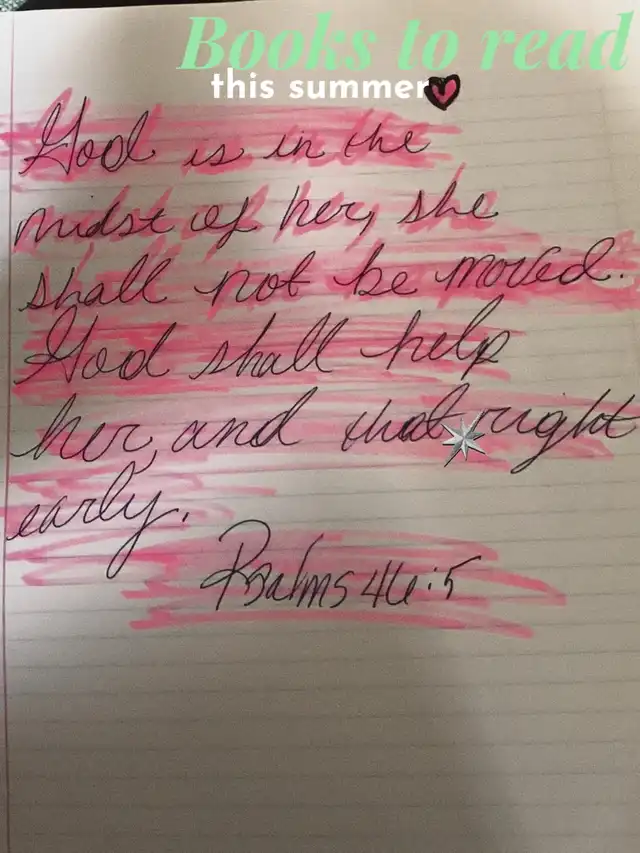 Books to read
this summer
God is in the
midst of her, she
shall not be moved.
God shall help
her, and that right
early.
Psalms 46:5